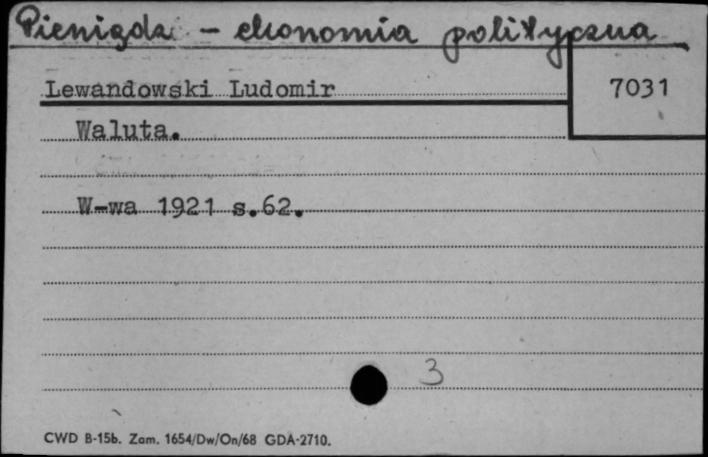 Pieniądz - ekonomia polityczna
Lewandowski Ludomir
7031
Waluta.
W-wa 1921 s.62.
3
CWD B-15b. Zam. 1654/Dw/On/68 GDA-2710.